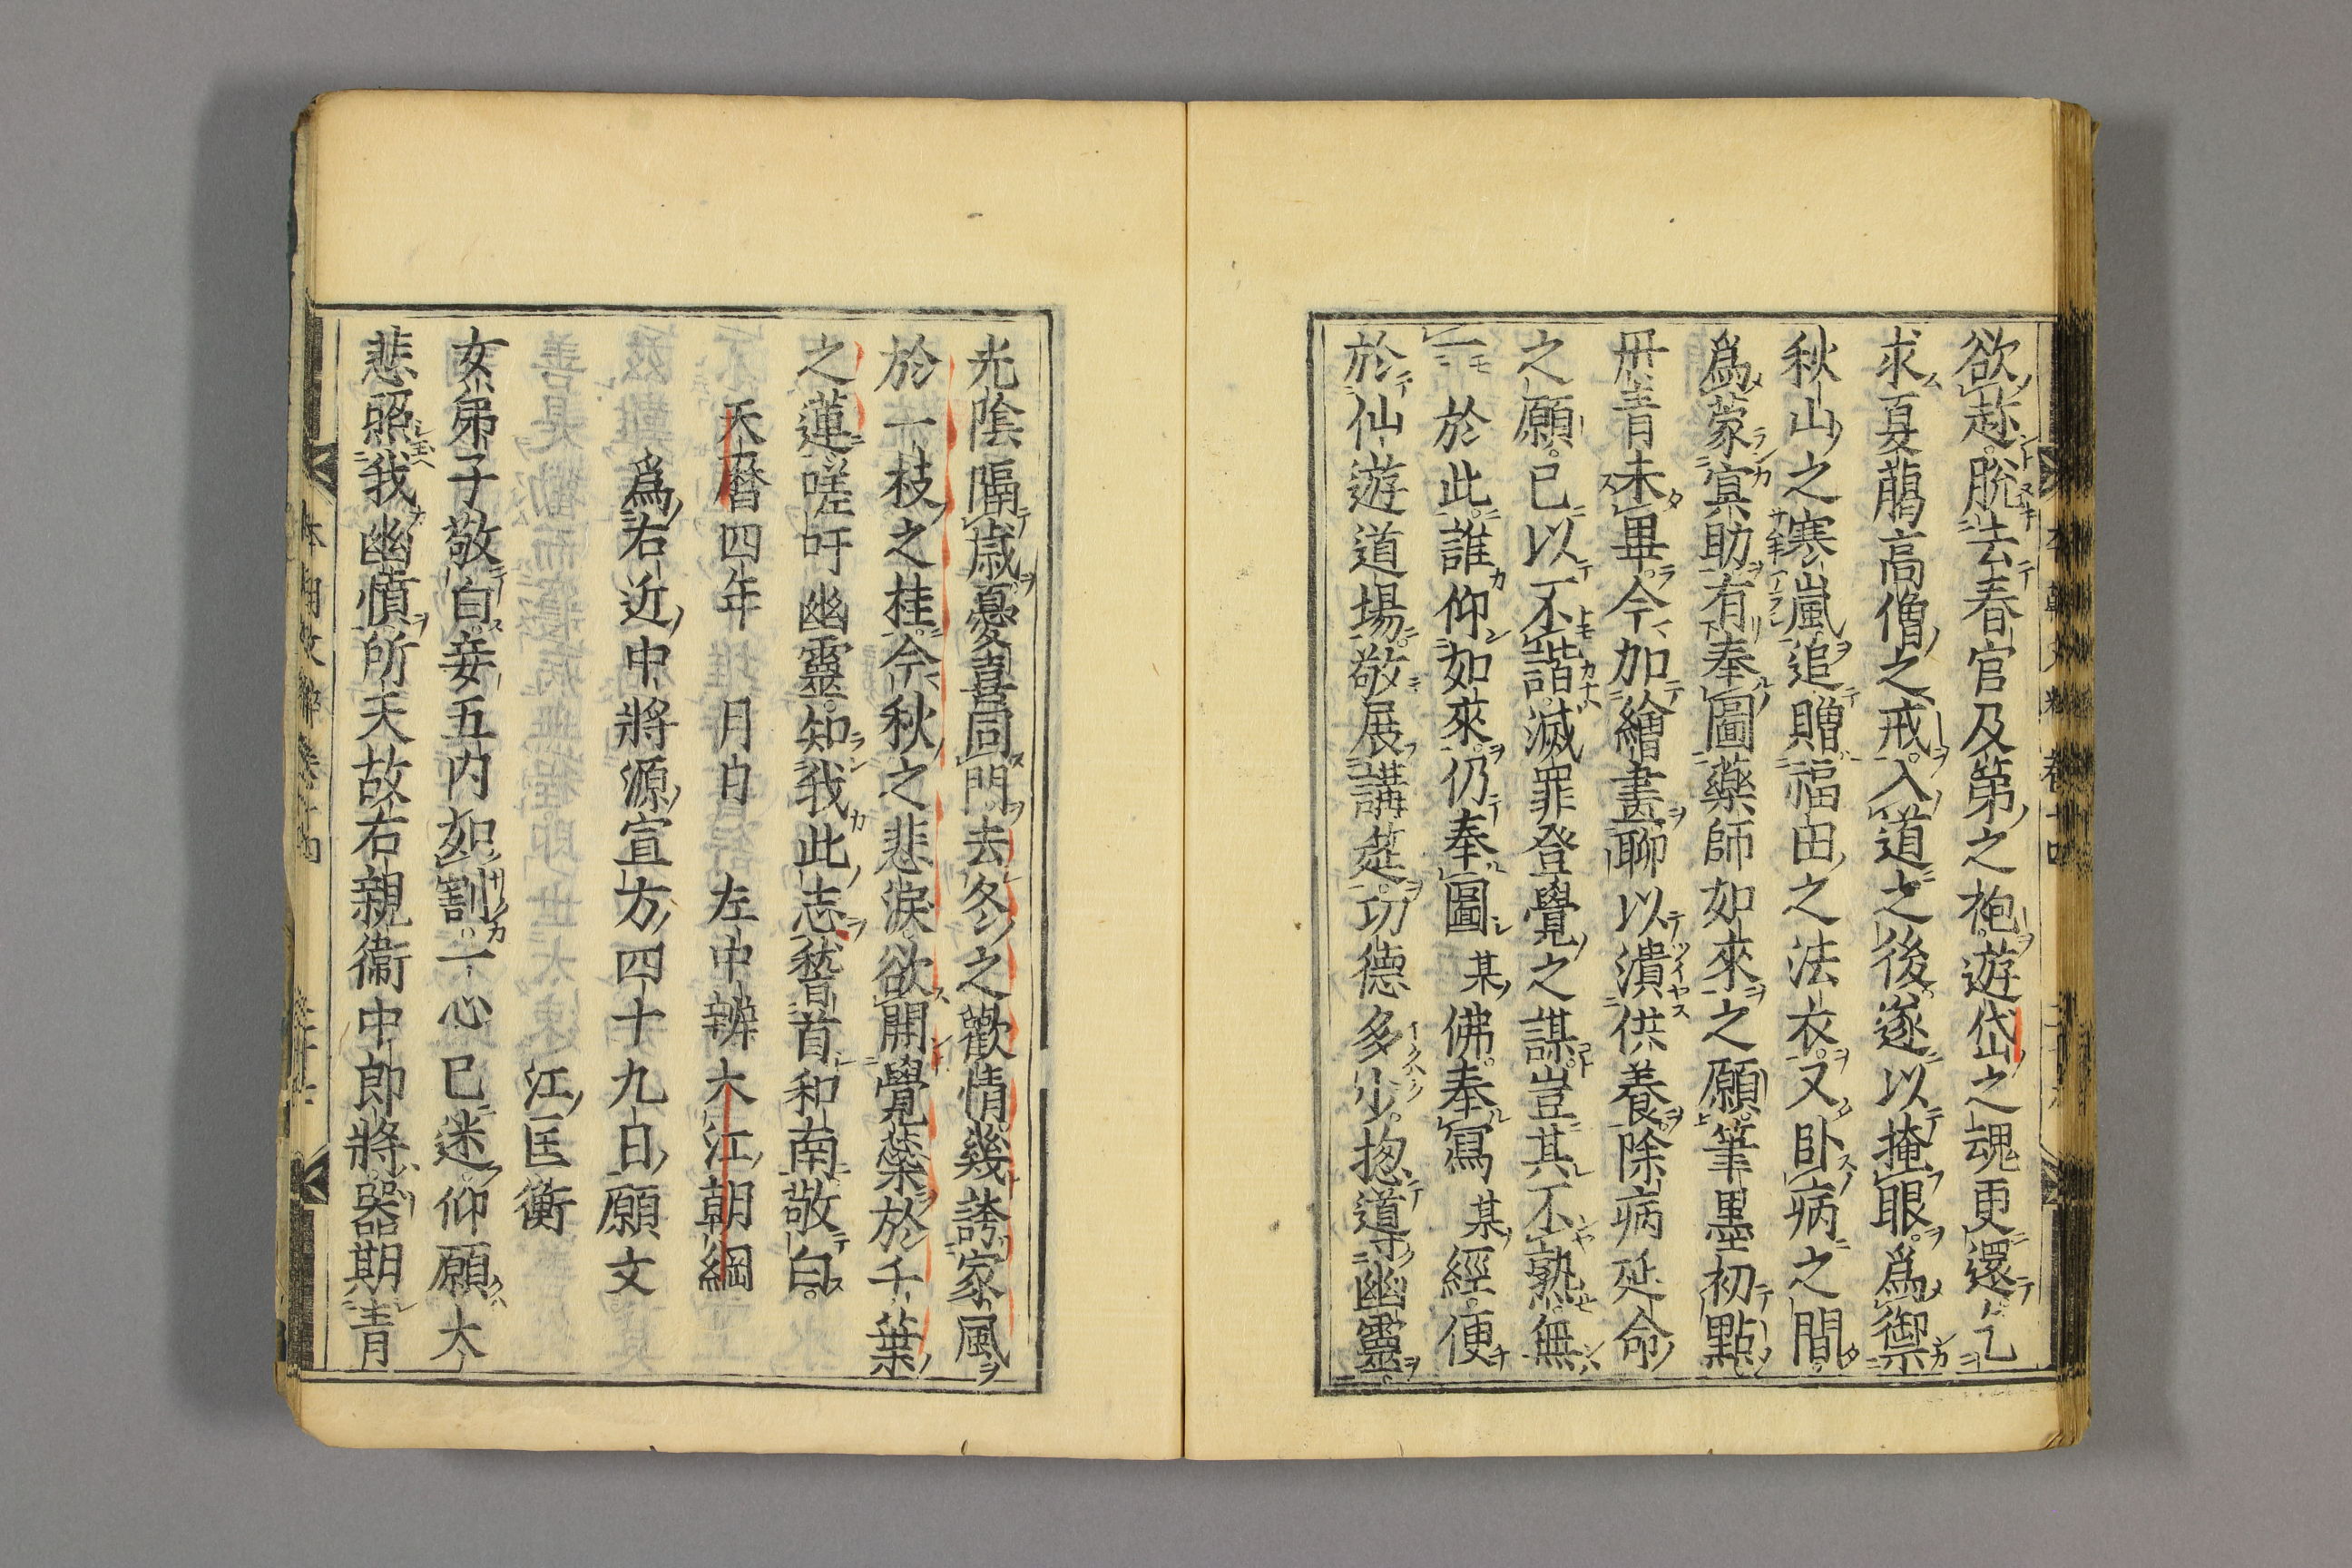 欲赴脱去春官及第之袍遊岱山之魂更還乞
求夏﨟高僧之戒入道之後遂以掩眼爲禦
秋山之寒嵐追贈福田之法衣又卧病之間
爲蒙冥助有奉圖藥師如來之願筆墨初點
丹青未畢今加繪畫聊以潰供養除病延命
之願已以不諧滅罪登覺之謀豈其不熟無
二於此誰仰如來仍奉圖某佛奉寫某經便
於仙遊道場敬展講筵功德多少揔導幽靈
光陰隔歳憂喜同門去冬之歡情幾誇家風
於一枝之桂今秋之悲淚欲開覺蘂於千葉
之蓮嗟呼幽靈知我此志稽首和南敬白
天曆四年 月 日 左中辨大江朝綱
爲右近中將源宣方四十九日願文
江匡衡
女弟子敬白妾五内如割一心已迷仰願大
悲照我幽憤所天故右親衞中郎將器期青